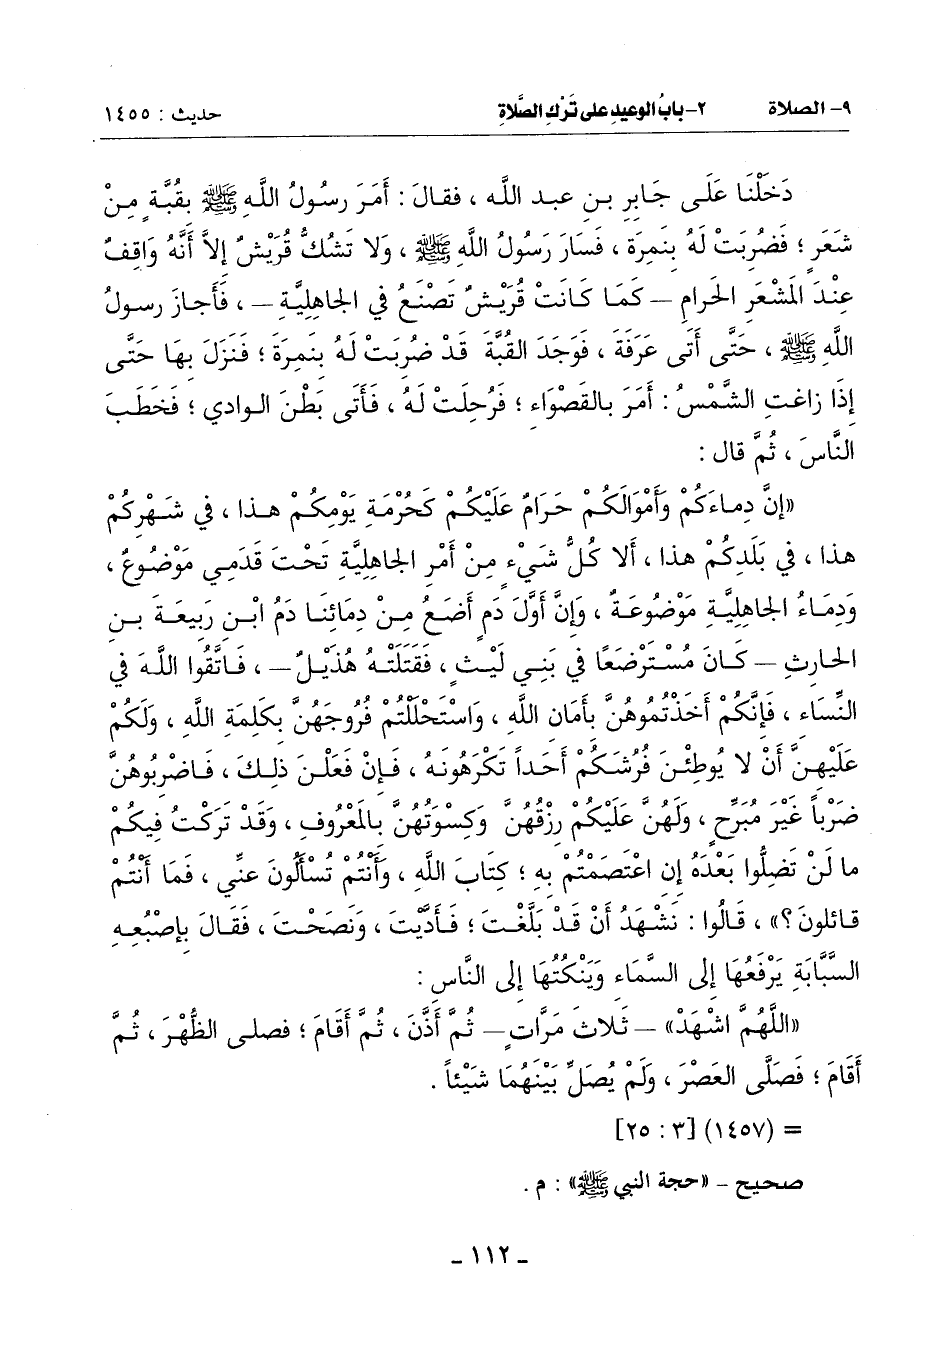 ٩- الصلاة ٢- بابُ الوعيدِ على تَرْكِ الصَّلاةِ حديث : ١٤٥٥
دَخَلْنَا عَلَى جَابِرِ بنِ عبد الله ، فقالَ : أَمَرَ رسُولُ اللهِ ﷺ بقُبَّةٍ مِنْ
شَعَرٍ ؛ فَضُرِبَتْ لَهُ بِنَمِرَةَ ، فَسَارَ رَسُولُ اللهِ ﷺ ، وَلا تَشُكُّ قُرَيْشٌ إلاَّ أَنَّهُ وَاقِفٌ
عِنْدَ المَشْعَرِ الحَرامِ – كَمَا كَانَتْ قُرَيْشٌ تَصْنَعُ في الجاهِليَّةِ – ، فَأَجازَ رسولُ
اللهِ ﷺ ، حَتَّى أَتى عَرَفَةَ ، فَوَجَدَ القُبَّةَ قَدْ ضُرِبَتْ لَهُ بنَمِرَةَ ؛ فَنَزَلَ بها حَتَّى
إذَا زاغتِ الشَّمْسُ : أَمَرَ بالقَصْوَاءِ ؛ فَرُحِلَتْ لَهُ ، فَأَتَى بَطْنَ الوادي ؛ فَخَطَبَ
النَّاسَ ، ثُمَّ قال :
«إنَّ دِماءَكُمْ وَأَمْوَالَكُمْ حَرَامٌ عَلَيْكُمْ كَحُرْمَةِ يَوْمِكُمْ هذا ، في شَهْرِكُمْ
هذا ، في بَلَدِكُمْ هذا ، أَلا كُلُّ شَيْءٍ مِنْ أَمْرِ الجاهِليَّةِ تَحْتَ قَدَمِي مَوْضُوعٌ ،
وَدِمَاءُ الجاهِليَّةِ مَوْضُوعَةٌ ، وَإنَّ أَوَّلَ دَمٍ أَضَعُ مِنْ دِمَائِنَا دَمُ ابْنِ رَبيعَةَ بنِ
الحارثِ – كَانَ مُسْتَرْضَعًا في بَنِي لَيْثٍ ، فَقَتَلَتْهُ هُذَيْلٌ – ، فَاتَّقُوا اللهَ في
النِّساءِ ، فَإنَّكُمْ أَخَذْتُمُوهُنَّ بأَمَانِ اللهِ ، وَاسْتَحْلَلْتُمْ فُرُوجَهُنَّ بكَلِمَةِ اللهِ ، وَلَكُمْ
عَلَيْهِنَّ أَنْ لا يُوطِئْنَ فُرُشَكُمْ أَحَداً تَكْرَهُونَهُ ، فَإنْ فَعَلْنَ ذلِكَ ، فَاضْرِبُوهُنَّ
ضَرْباً غَيْرَ مُبَرِّحٍ ، ولَهُنَّ عَلَيْكُمْ رِزْقُهُنَّ وَكِسْوَتُهُنَّ بالمَعْرُوفِ ، وَقَدْ تَرَكْتُ فِيكُمْ
ما لَنْ تَضِلُّوا بَعْدَهُ إن اعْتَصَمْتُمْ بهِ ؛ كِتَابَ اللهِ ، وَأَنْتُمْ تُسْأَلُونَ عَنِّي ، فَمَا أَنْتُمْ
قائلونَ ؟» ، قَالُوا : نَشْهَدُ أَنْ قَدْ بَلَّغْتَ ؛ فَأَدَّيْتَ ، وَنَصَحْتَ ، فَقَالَ بإصْبُعِهِ
السَّبَّابَةِ يَرْفَعُهَا إلى السَّمَاءِ وَيَنْكُتُهَا إلى النَّاسِ :
«اللَّهُمَّ اشْهَدْ» – ثَلاثَ مَرَّاتٍ – ثُمَّ أَذَّنَ ، ثُمَّ أَقَامَ ؛ فصلى الظُّهْرَ ، ثُمَّ
أَقَامَ ؛ فَصَلَّى العَصْرَ ، وَلَمْ يُصَلِّ بَيْنَهُمَا شَيْئاً .
= (١٤٥٧) [٣ : ٢٥]
صحيح – «حجة النبي ﷺ» : م .
ـ ١١٢ ـ